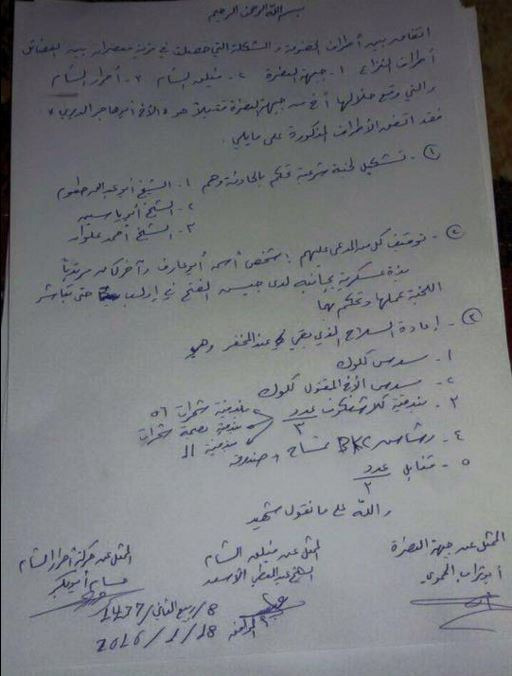 بسم الله الرحمن الرحيم
اتفاق بين أطراف الخصومة والمشكلة التي حصلت في قرية معصران بين الفصائل
أطراف النزاع ١- جبهة النصرة ٢- فيلق الشام ٣- أحرار الشام
والتي وقع خلالها أخ من جبهة النصرة قتيلاً هو «الأخ أبو هاجر
فقد اتفق الأطراف المذكورة على مايلي.
١- تشكيل لجنة شرعية تحكم بالحادثة وهم ١- الشيخ
٢- الشيخ أبو ياسر
٣- الشيخ أحمد علوان
٢- توقيف كل من المدعى عليهم باسم أبو عارف وآخر كان مرتدياً
بذة عسكرية بجانبه لدى جيش الفتح في إدلب حتى تباشر
اللجنة عملها وتحكم بها
٣- إعادة السلاح الذي بقي في عند المخفر وهي
١- مسدس كلوك
٢- مسدس الأخ المقتول كلوك
٣- بندقية كلاشنكوف عدد ٣
بندقية شحرات ٥٦
بندقية بصمة شحرات
بندقية 11
٤- رشاش BKC تمساح + صندوق
٥- قنابل عدد ٢
والله على ما نقول شهيد
الممثل عن جبهة النصرة
أبو تراب الحموي
الممثل عن فيلق الشام
الممثل عن حركة أحرار الشام
حسام أبو بكر
8/ربيع الثاني/1437
الموافق 18/1/2016